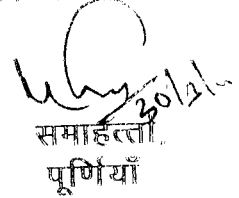 30/1/
समाहर्त्ता
पूर्णियाँ